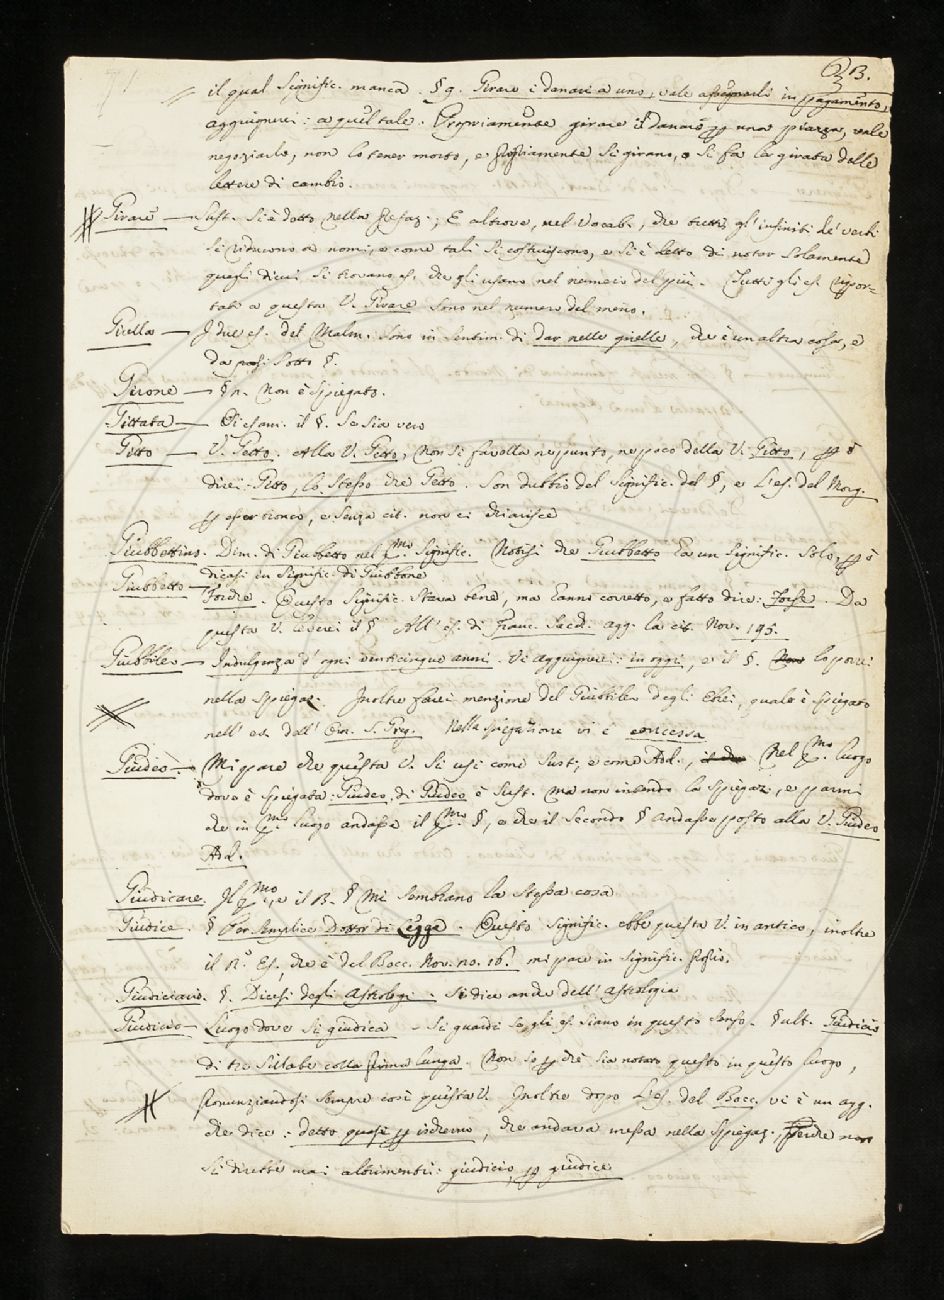 B.
il qual Signific. manca. § 9. Girare i danari a uno, vale assegnarli in pagamento,
aggiugnerei: a quel tale. Propriamente girare il danaro una piazza, vale
negoziarlo, non lo tener morto, e si girano, o si fa la girata delle
lettere di cambio.
Girare — Sust. Si è detto nella Prefaz.; E altrove, nel Vocab., che tutti gl' infiniti de' verbi
si riducono a nomi, e come tali si costruiscono, e si è detto di notar solamente
quegli di cui si trovano es. che gli usano nel numero del più. Tutti gli es. rippor=
tati a questa V. Girare sono nel numero del meno.
Girella — I due es. del Malm. sono in sentim. di dar nelle girelle, che è un'altra cosa, e
da porsi sotto §.
Girone — § n. Non è spiegato.
Gittata — Si esam. il §. Se sia vero
Gitto — V. Getto. Alla V. Getto, non si favella ne punto, ne poco della V. Gitto,
direi: Gitto, lo stesso che Getto. Son dubbio del signific. del §, e L'es. del Morg.
e senza cit. non ci chiarisce
Giubbettino. Dim. di Giubbetto nel pmo signific. Notisi che Giubbetto ha un signific. solo,
dicasi in signific. di Giubbone
Giubbetto — Forche. Questo signific. stava bene, ma hanno corretto, e fatto dire: Forse. Da
questa V. il § All' es. di Franc. Sacch. agg. la cit. Nov. 195.
Giubbileo — Indulgenza d' ogni venticinque anni. Vi aggiugnerei: in oggi, e il §. Non lo porrei
nella spiegaz. Inoltre farei menzione del Giubbileo degli Ebrei, quale è spiegato
nell' es. dall' Om. S. Greg. Nella spiegazione vi è concessa
Giudeo — Mi pare che questa V. si usi come Sust., e come Ad., Nel pmo luogo
dove è spiegata: Giudeo, di Giudeo è Sust. ma non intendo la spiegaz., e parmi
che in pmo luogo andasse il pmo §, e che il secondo § andasse posto alla V. Giudeo
Ad.
Giudicare. Il pmo, e il B. § Mi sembrano la stessa cosa
Giudice. § Per semplice Dottor di Legge. Questo signific. ebbe questa V. in antico, inoltre
il n.° Es., che è del Bocc. Nov. no. 16. mi pare in signific. proprio.
Giudiciario. §. Dicesi degli Astrologi. Si dice anche dell' Astrologia
Giudicio — Luogo dove si giudica. Si guardi se gli es. siano in questo senso. § ult. Giudicio
di tre sillabe colla prima lunga. Non so chè sia notato questo in questo luogo,
Pronunziandosi sempre così questa V. Inoltre dopo L'es. del Bocc. vi è un agg.
che dice: detto quasi per ischerno, che andava messa nella spiegaz., perche non
si direbbe mai altrimenti: giudicio, per giudice